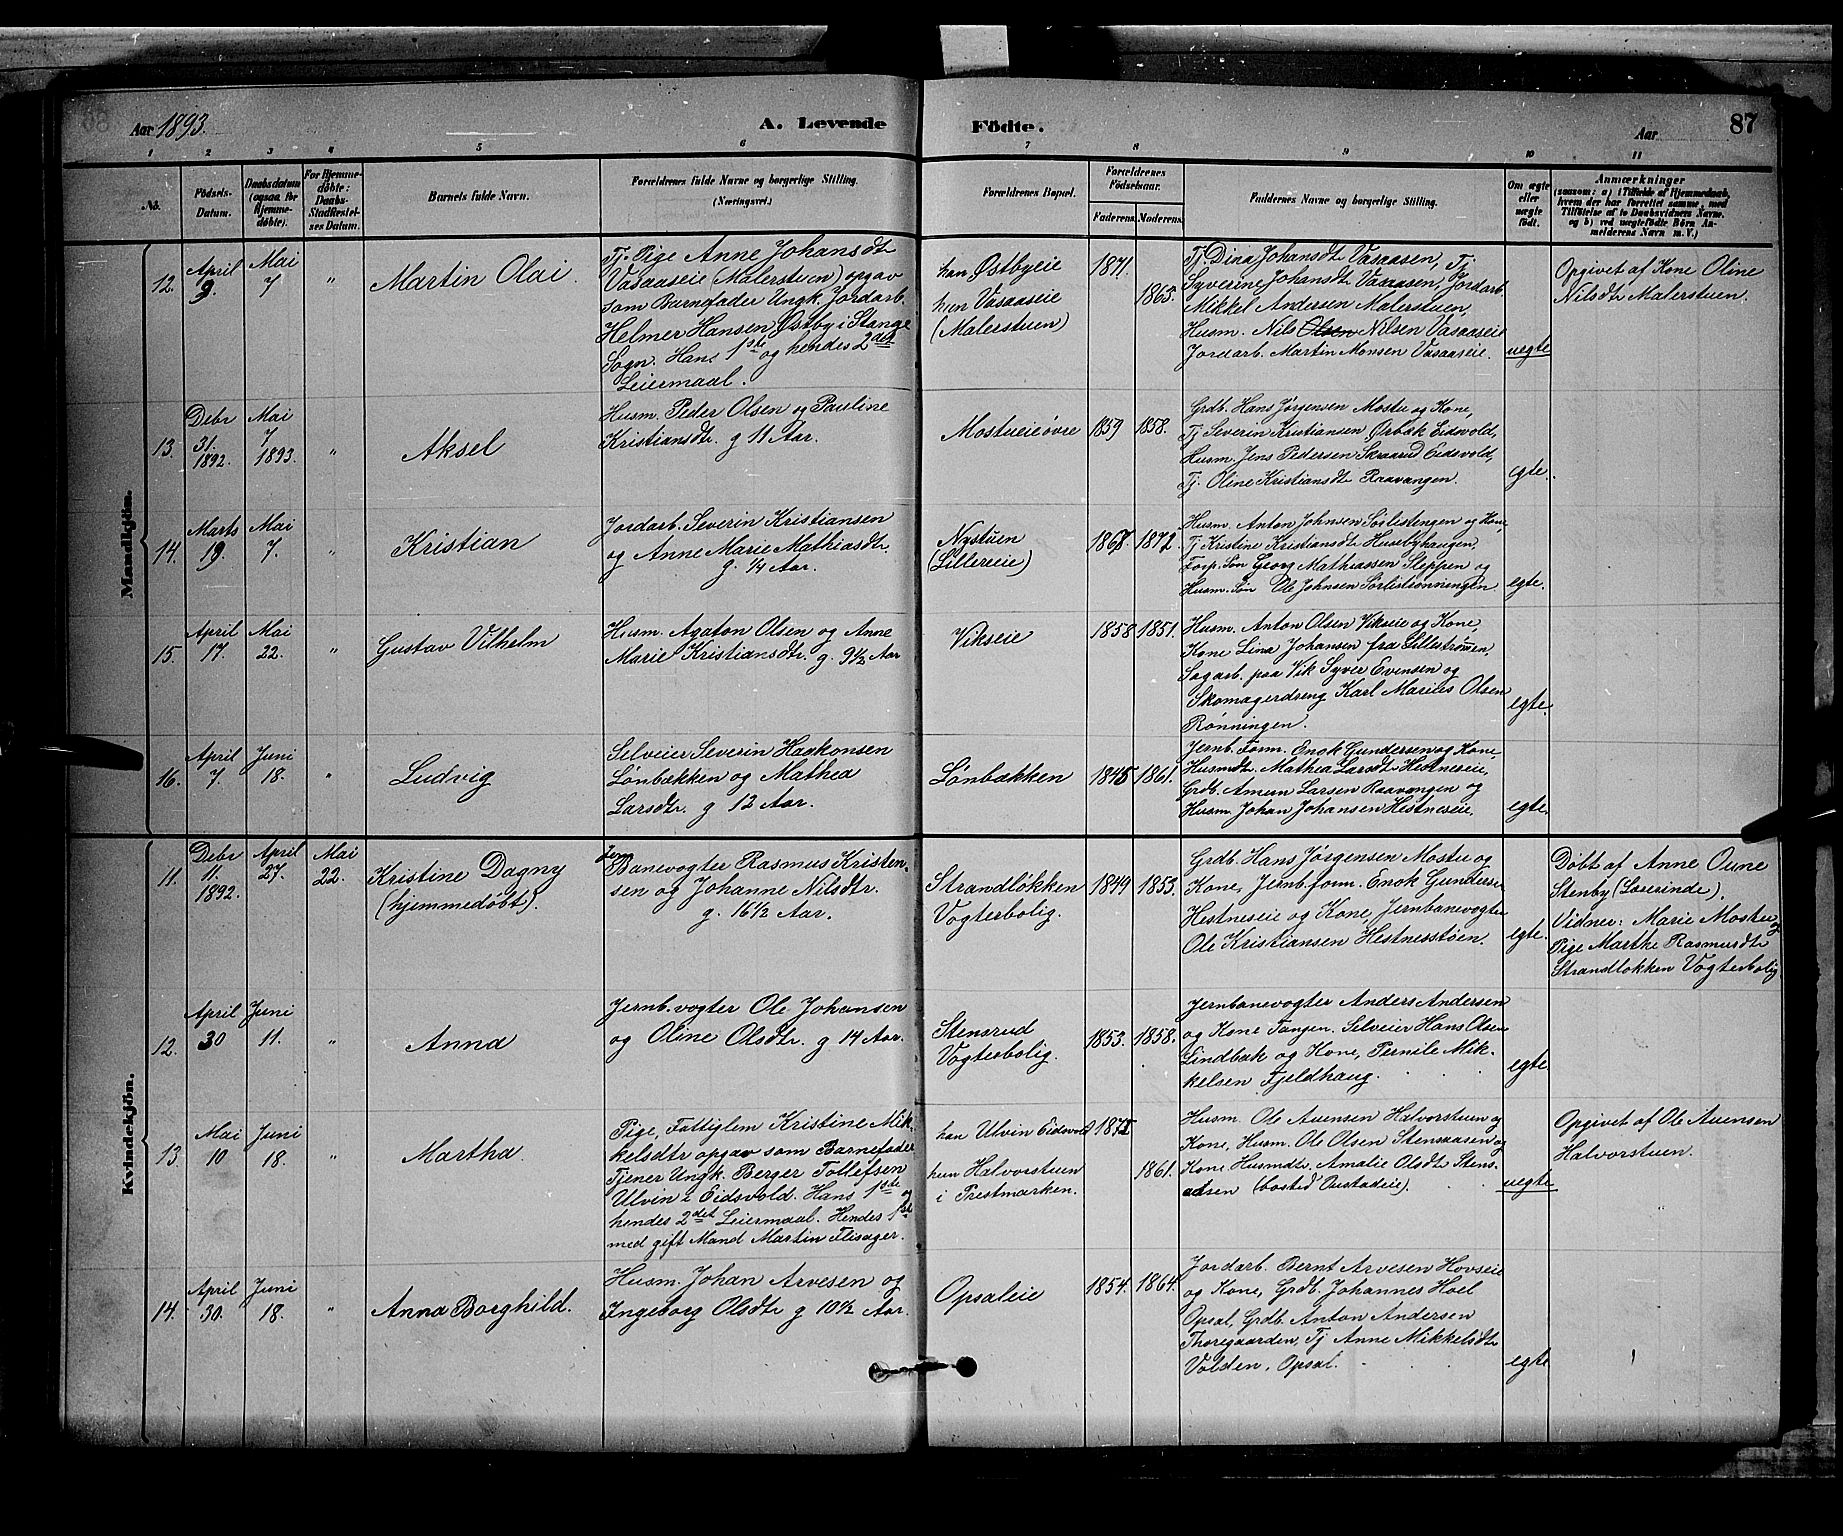 Aar 1893. A. Levende Födte. Aar 87
1 2 3 4 5 6 7 8 9 10 11
No. Födsels-Datum. Daabsdatum (ogsaa for Hjemme-döbte). For Hjemme-döbte: Daabs-Stadfæstel-ses Datum. Barnets fulde Navn. Forældrenes fulde Navne og borgerlige Stilling. (Næringsvei.) Forældrenes Bopæl. Forældrenes Födselsaar. Faderens. Moderens. Faddernes Navne og borgerlige Stilling. Om ægte eller uægte födt. Anmærkninger
(saasom: a) i Tilfælde af Hjemmedaab,
hvem der har forrettet samme, med
Tilföielse af to Daabsvidners Navne,
og b) ved uægtefödte Börn An-
melderens Navn m. V.)
Mandkjön.
12. April 9. Mai 7 " Martin Olai.
Tj. Pige Anne Johansdtr
Vasaaseie (Malerstuen) opgav
som Barnefader Ungk. Jordarb.
Helmer Hansen Østby i Stange
Sogn. Hans 1ste og hendes 2det
Leiermaal.
han Østbyeie
hun Vasaaseie
(Malerstuen)
1871. 1865.
Tj Dina Johansdt Vasaasen, Tj
Syverine Johansdt Vasaasen, Jordarb.
Mikkel Andersen Malerstuen,
Husm. Nils Olsen Nilsen Vasaaseie
Jordarb. Martin Monsen Vasaaseie.
uegte
Opgivet af Kone Oline
Nilsdtr Malerstuen.
13. Debr 31. 1892. Mai 7 1893. " Aksel
Husm. Peder Olsen og Pauline
Kristiansdtr. g 11 Aar.
Mostueieøvre 1859 1858.
Grdb. Hans Jørgensen Mostu og Kone,
Tj Severin Kristiansen Ørbæk Eidsvold,
Husm. Jens Pedersen Skraarud Eidsvold,
Tj. Oline Kristiansdt Raavangen.
egte.
14. Marts 19. Mai 7. " Kristian
Jordarb. Severin Kristiansen
og Anne Marie Mathiasdtr
g. 1/4 Aar.
Nystuen
(Lillereie)
1868. 1872.
Husm. Anton Johnsen Sørlistengen og Kone,
Tj Kristine Kristiansdt Husebyhaugen,
Forp. Søn Georg Mathiassen Steppen og
Husm. Søn Ole Johnsen Sørlistrønningen.
egte.
15. April 17. Mai 22. " Gustav Vilhelm
Husm. Agaton Olsen og Anne
Marie Kristiansdtr. g. 9 1/2 Aar
Vikseie 1858 1851.
Husm. Anton Olsen Vikseie og Kone,
Kone Lina Johansen fra Lillestrømen,
Sagarb. paa Vik Syver Evensen og
Skomagerdreng Karl Marius Olsen
Rønningen.
egte.
16. April 7. Juni 18. " Ludvig
Selveier Severin Haakonsen
Lønbækken og Mathea
Larsdtr. g 12 Aar.
Lønbækken 1845 1861.
Jernb. Form. Enok Gundersen og Kone,
Husmdtr. Mathea Larsdt Hestneseie,
Grdb. Amun Larsen Raavangen og
Husm. Johan Johansen Hestneseie.
egte.
Kvindekjön.
11. Debr 11. 1892. April 27. Mai 22. Kristine Dagny
(hjemmedøbt).
Jern
Banevogter Rasmus Kristen-
sen og Johanne Nilsdtr.
g. 16 1/2 Aar.
Strandløkken
Vogterbolig.
1849 1853.
Grdb. Hans Jørgensen Mostu og
Kone, Jernb. form. Enok Gunderse
Hestneseie og Kone, Jernbanevogter
Ole Kristiansen Hestnesstøen.
egte.
Døbt af Anne Oune
Stenby (Lærerinde).
Vidner: Marie Mostu og
Pige Marthe Rasmusdtr
Strandløkken Vogterbolig
12. April 30 Juni 11. " Anna
Jernb. vogter Ole Johansen
og Oline Olsdtr. g 14 Aar.
Stensrud
Vogterbolig.
1853. 1858.
Jernbanevogter Anders Andersen
og Kone Tangen. Selveier Hans Olsen
Lindbæk og Kone, Pernile Mik-
kelsen Fjeldhaug.
egte
13. Mai 10 Juni 18. " Martha.
Pige, Fattiglem Kristine Mik-
kelsdtr opgav som Barnefader
Tjener Ungk. Berger Tollefsen
Ulvin i Eidsvold. Hans 1ste og
hendes 2det Leiermaal. Hendes 1ste
med gift Mand Martin Flisager.
han Ulvin Eidsvold
hun Halvorstuen
i Prestmarken.
1872 1861.
Husm. Ole Auensen Halvorstuen og
Kone, Husm. Ole Olsen Stensaasen og
Kone Husmdtr. Amalie Olsdtr Stens-
aasen (bosted Oustadeie).
uegte
Opgivet af Ole Auensen
Halvorstuen.
14. April 30. Juni 18. " Anna Borghild.
Husm. Johan Arvesen og
Ingeborg Olsdtr g 10 1/2 Aar.
Opsaleie 1854. 1864.
Jordarb. Bernt Arvesen Hovseie
og Kone, Grdb. Johannes Hoel
Opsal, Grdb. Anton Andersen
Thoregaarden, Tj Anne Mikkelsdtr
Volden, Opsal.
egte